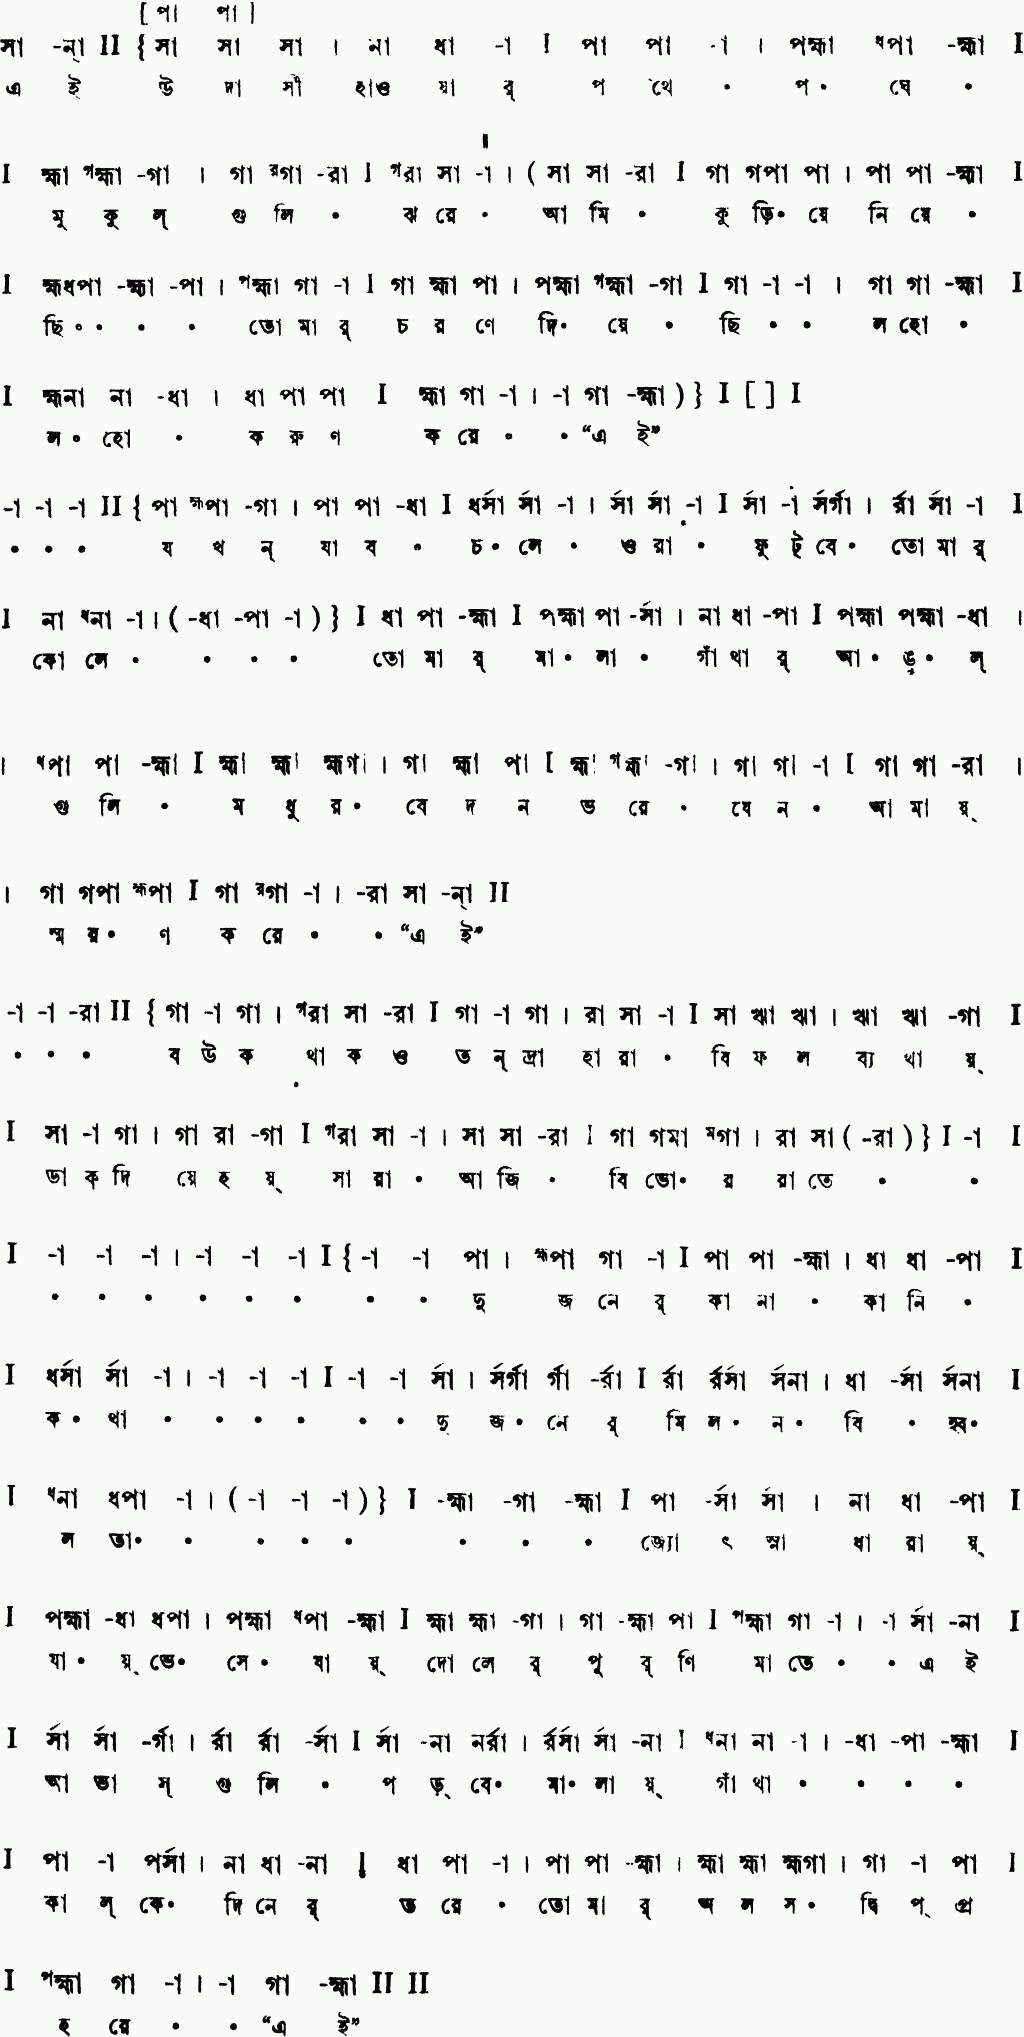 [ পা পা ]
সা -ন্‌া II { সা সা সা । না ধা -া I পা পা -া । পহ্মা ধপা -হ্মা I
এ ই উ দা সী হাও য়া র্ প থে • প• থে •
I হ্মা গহ্মা -গা । গা রগা -রা I গরা সা -া । ( সা সা -রা I গা গপা পা । পা পা -হ্মা I
মু কু ল্ গু লি • ঝ রে • আ মি • কু ড়ি• য়ে নি য়ে •
I হ্মধপা -হ্মা -পা । পহ্মা গা -া I গা হ্মা পা । পহ্মা গহ্মা -গা I গা -া -া । গা গা -হ্মা I
ছি•• • • তো মা র্ চ র ণে দি• য়ে • ছি • • ল হো •
I হ্মনা না -ধা । ধা পা পা I হ্মা গা -া । -া গা -হ্মা ) } I [ ] I
ল• হো • ক রু ণ ক রে • • “এ ই”
-া -া -া II { পা হ্মপা -গা । পা পা -ধা I ধর্সা র্সা -া । র্সা র্সা -া I র্সা -া র্সর্গা । র্রা র্সা -া I
• • • য খ ন্ যা ব • চ• লে • ও রা • ফু ট্ বে• তো মা র্
I না ধনা -া । ( -ধা -পা -া ) } I ধা পা -হ্মা I পহ্মা পা -র্সা । না ধা -পা I পহ্মা পহ্মা -ধা ।
কো লে • • • • তো মা র্ মা• লা • গাঁ থা র্ আ• ঙু• ল্
। ধপা পা -হ্মা I হ্মা হ্মা হ্মগা । গা হ্মা পা I হ্মা গহ্মা -গা । গা গা -া I গা গা -রা ।
গু লি • ম ধু র• বে দ ন ভ রে • যে ন • আ মা য়্
। গা গপা হ্মপা I গা রগা -া । -রা সা -ন্‌া II
স্ম র• ণ ক রে • • “এ ই”
-া -া -রা II { গা -া গা । গরা সা -রা I গা -া গা । রা সা -া I সা ঋা ঋা । ঋা ঋা -গা I
• • • ব উ ক থা ক ও ত ন্ দ্রা হা রা • বি ফ ল ব্য থা য়্
I সা -া গা । গা রা -গা I গরা সা -া । সা সা -রা I গা গমা মগা । রা সা ( -রা ) } I -া I
ডা ক্ দি য়ে হ য়্ সা রা • আ জি • বি ভো• র রা তে • •
I -া -া -া । -া -া -া I { -া -া পা । হ্মপা গা -া I পা পা -হ্মা । ধা ধা -পা I
• • • • • • • • দু জ নে র্ কা না • কা নি •
I ধর্সা র্সা -া । -া -া -া I -া -া র্সা । র্সর্গা র্গা -র্রা I র্রা র্রর্সা র্সনা । ধা -র্সা র্সনা I
ক• থা • • • • • • দু জ• নে র্ মি ল• ন• বি • হ্ব•
I ধনা ধপা -া । ( -া -া -া ) } I -হ্মা -গা -হ্মা I পা -র্সা র্সা । না ধা -পা I
ল তা• • • • • • • • জ্যো ৎ স্না ধা রা য়্
I পহ্মা -ধা ধপা । পহ্মা ধপা -হ্মা I হ্মা হ্মা -গা । গা -হ্মা পা I পহ্মা গা -া । -া র্সা -না I
যা• য়্ ভে• সে• যা য়্ দো লে র্ পূ র্ ণি মা তে • • এ ই
I র্সা র্সা -র্গা । র্রা র্রা -র্সা I র্সা -না নর্রা । র্রর্সা র্সা -না I ধনা না -া । -ধা -পা -হ্মা I
আ ভা স্ গু লি • প ড়্ বে• মা• লা য়্ গাঁ থা • • • •
I পা -া পর্সা । না ধা -না I ধা পা -া । পা পা -হ্মা । হ্মা হ্মা হ্মগা । গা -া পা I
কা ল্ কে• দি নে র্ ত রে • তো মা র্ অ ল স• দ্বি প্ প্র
I পহ্মা গা -া । -া গা -হ্মা II II
হ রে • • “এ ই”